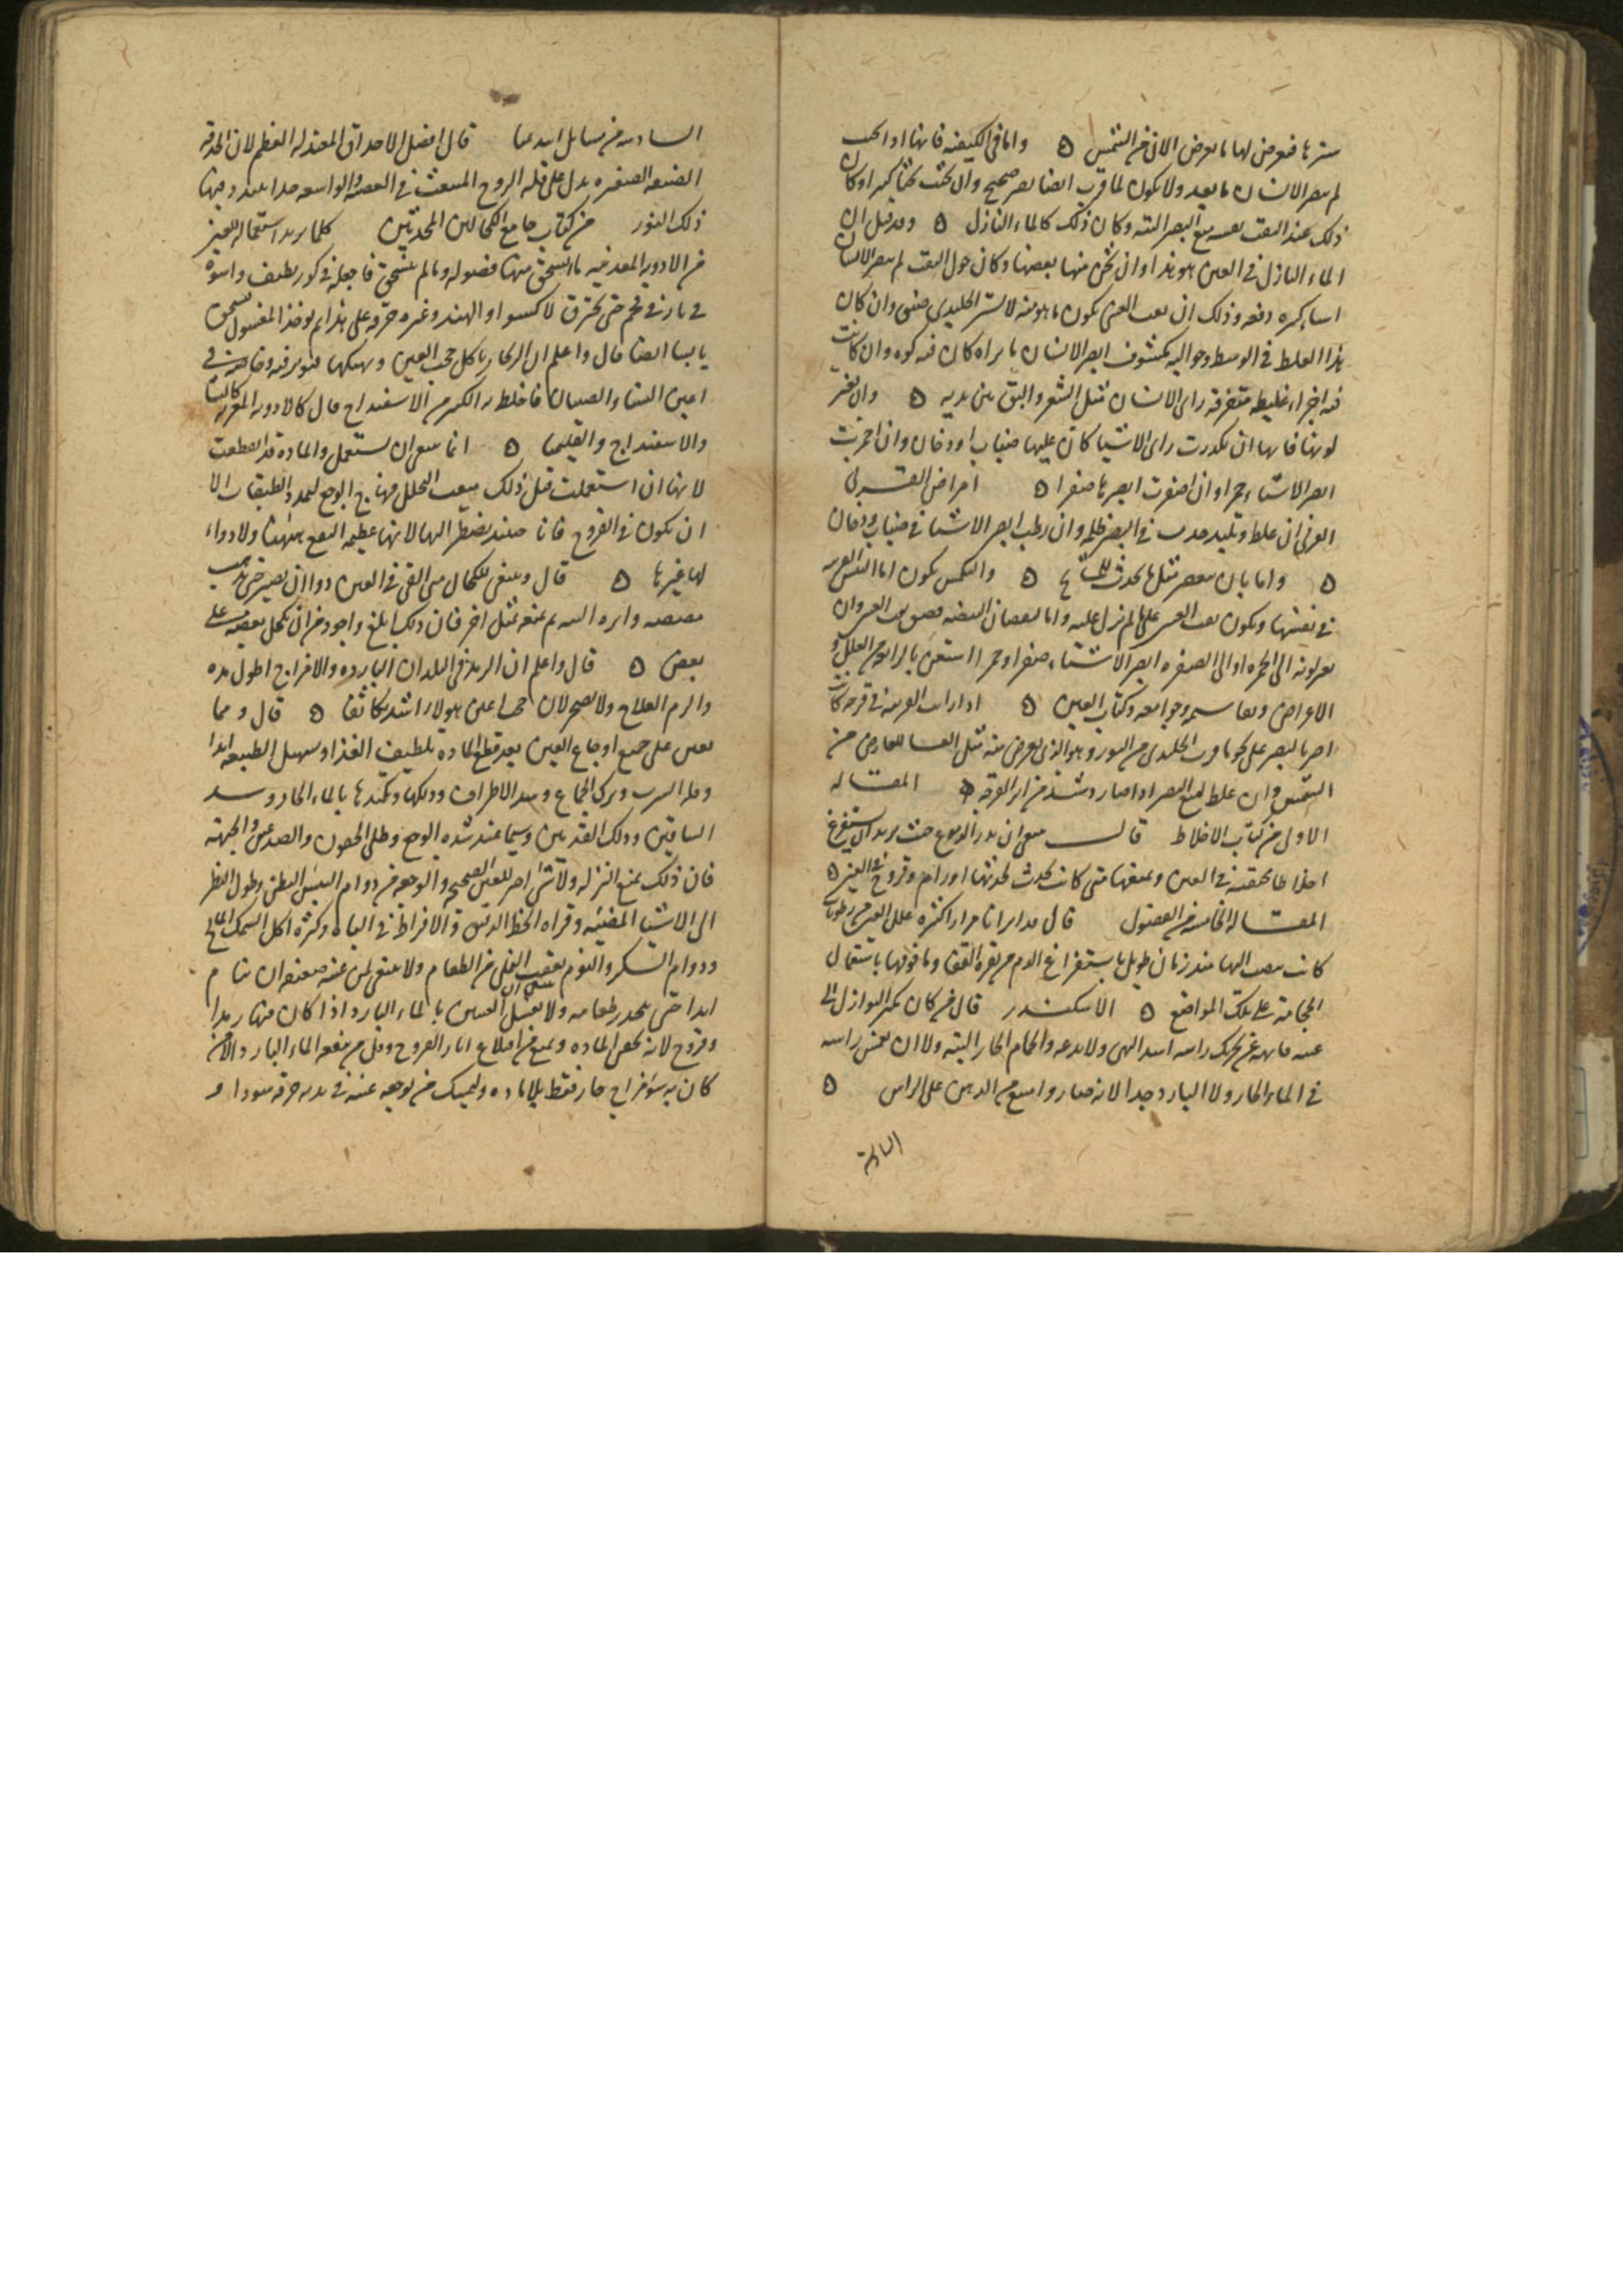 سترها فيعرض لها ما يعرض الان من الشمس ۵ واما في الكيفيه فانها اذا
لم يبصر الانسان ما يبعد ولا يكون لما قرب ايضا بصر صحيح وان كثيرا وكان
ذلك عند الثقب نفسه منع البصر البته وكان ذلك كالماء النازل ۵ وقد قيل ان
الماء النازل في العين هو هذا وان ثخن منها بعضها وكان حول الثقب لم يبصر الانسان
اشيا كثيره دفعه وذلك ان ثقب العين يكون ما هو منه لا يستر الجليدي وان كان
هذا الغلظ في الوسط وحواليه مكشوف ابصر الانسان ما يراه كان فيه كوه وان كانت
فيه اجزاء غليظه متفرقه راى الانسان مثل الشعر والبق بين يديه ۵ وان تغير
لونها فانها ان تكدرت راى الاشيا كان عليها ضباب او دخان وان احمرت
ابصر الاشياء حمرا وان اصفرت ابصرها صفرا ۵ امراض القرني
القرني ان غلظ وتلبد حدث في البصر ظلمه وان رطب ابصر الاشيا في ضباب ودخان
۵ واما بان مثل ما يحدث للمشايخ ۵ والتكمش يكون اما اليبس القرنيه
في نفسها ويكون ثقب العين على ما لم يزل عليه واما نقصان البيضه فيضيق ثقب العين وان
تغير لونه الى الحمره او الى الصفره ابصر الاشياء صفرا وحمرا استعن بالرابعه من العلل و
الاعراض وتقاسيمه وجوامعه وكتاب العين ۵ اذا رايت القرنيه في قرحه كانت
اضر بالبصر على نحو ما قرب الجليدي من النور وهو الذي يعرض منه مثل العشا العارض من
الشمس وان غلظ لمنع البصر اذا صار دشبذ من اثر القرحه ۵ المقاله
الاولى من كتاب الاخلاط قال ينبغي ان يدر الدموع حيث يريد ان يستفرغ
اخلاطا محتقنه في العين ويمنعها متى كانت تحدث لحدتها اورام وقروح في العين ۵
المقاله الخامسه من الفصول قال قد ابرانا مرارا كثيره علل العين من رطوبات
كانت تنصب اليها منذ زمان طويل باستفراغ الدم من نقره القفا وما فوقها باستعمال
المحاجمة على تلك المواضع ۵ الاسكندر قال من كان كثير النوازل الى
عينه فانهه عن تحريك راسه اشد النهي ولا يدعه والحمام الحار البته ولا ان يغمس راسه
في الماء الحار ولا البارد جدا لانه ضار وامنع من الدهن على الراس ۵
السادسة
السادسه من مسايل ابيديميا قال افضل الاحداق المعتدله العظم لان الحدقه
الضيقه الصغيره يدل على قله الروح المنبعث في العصبه والواسعه جدا يتبدد فيها
ذلك النور من كتاب جامع الكحالين المحدثين كلما يريد استعماله للعين
من الادويه المعدنيه ما انسحق منها فصوله وما لم ينسحق فاجعله في كوز لطيف واشوه
في نار في فحم حتى يحترق لا كسيوا والهند وغيره حرقه على هذا ثم يوخذ المغسول يسحق
يابسا ايضا قال واعلم ان الزنجار ياكل حجب العين وينهكها فتورفيه وخاصه في
اعين النساء والصبيان فاخلط به الكثير من الاسفيداج قال كالادويه المغريه كالنشا
والاسفيداج والقليميا ۵ انما ينبغي ان يستعمل والماده قد انقطعت
لانها ان استعملت قبل ذلك منعت التحلل فهاج الوجع لتمدد الطبقات الا
ان يكون في القروح فانا حينئذ نضطر اليها لانها عظيمه النفع هاهنا ولا دواء
لها غيرها ۵ قال وينبغي للكحال متى القى في العين دواء ان يصبر حتى يذهب
مضضه واثره البته ثم يتبعه بمثل اخر فان ذلك ابلغ واجود من ان يكحل بعضه على
بعض ۵ قال واعلم ان الرمد في البلدان البارده والامزاج اطول مده
والزم العلاج ولا يضجر لان حجب اعين هولاء اشد تكاثفا ۵ قال ومما
يعين على جميع اوجاع العين بعد قطع الماده تلطيف الغذا وتسهيل الطبيعه ابدا
وقله الشرب وترك الجماع وشد الاطراف ودلكها وتكميدها بالماء الحار وشد
الساقين ودلك القدمين وسيما عند شده الوجع وطلى الجفون والصدغين والجبهه
فان ذلك يمنع النزله ولا شى اضر للعين الصحيحه والوجعه من دوام اليبس البطن وطول النظر
الى الاشيا المضيئه وقراه الخط الدقيق والافراط في الباه وكثره اكل السمك المالح
ودوام السكر والنوم بعقب التملى من الطعام ولا ينبغي لمن عينه ضعفه ان ينام
ابدا حتى ينحدر طعامه ولا ينبغي ان يغسل العين بالماء البارد اذا كان فيها رمدا
وقروح لانه يحقن الماده ويمنع من اقلاع اثار القروح وقل من نفعه الماء البارد الا من
كان به سوء مزاج حار فقط بلا ماده وليمسك من يوجعه عينه في يديه خرقه سودا و